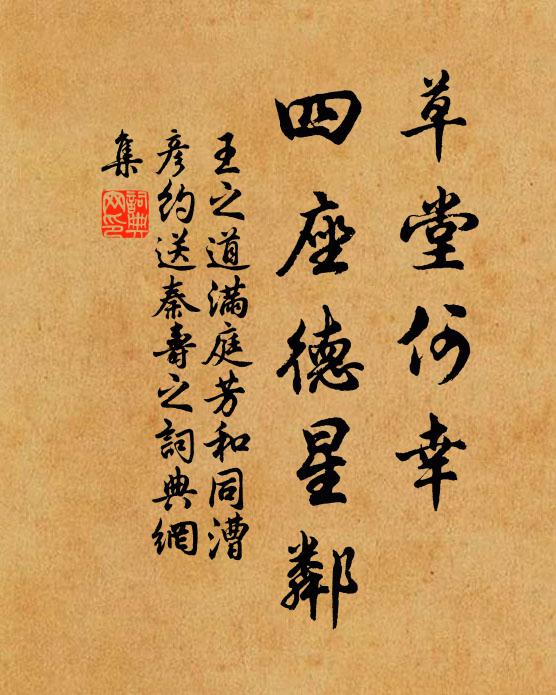 草堂何幸
四座德星鄰
王之道滿庭芳和同漕
彥約送秦壽之詞典網
集
詞典
网印